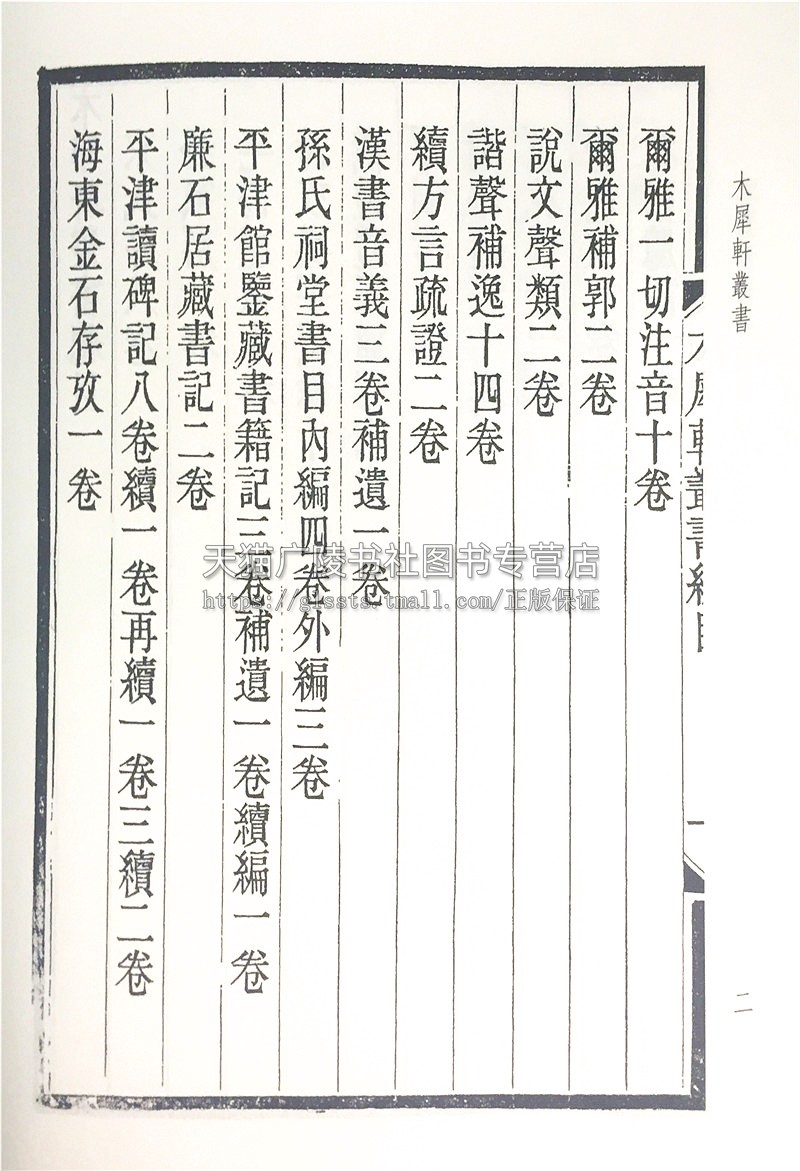 木犀軒叢書
木犀軒叢書總目
一
爾雅一切注音十卷
爾雅補郭二卷
說文聲類二卷
諧聲補逸十四卷
續方言疏證二卷
漢書音義三卷補遺一卷
孫氏祠堂書目內編四卷外編三卷
平津館鑒藏書籍記三卷補遺一卷續編一卷
廉石居藏書記二卷
平津讀碑記八卷續一卷再續一卷三續二卷
海東金石存攷一卷
二
天猫广陵书社图书专营店
https://glssts.tmall.com/正版保证